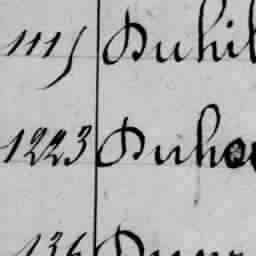 1115 Duhil
1223 Duho
136